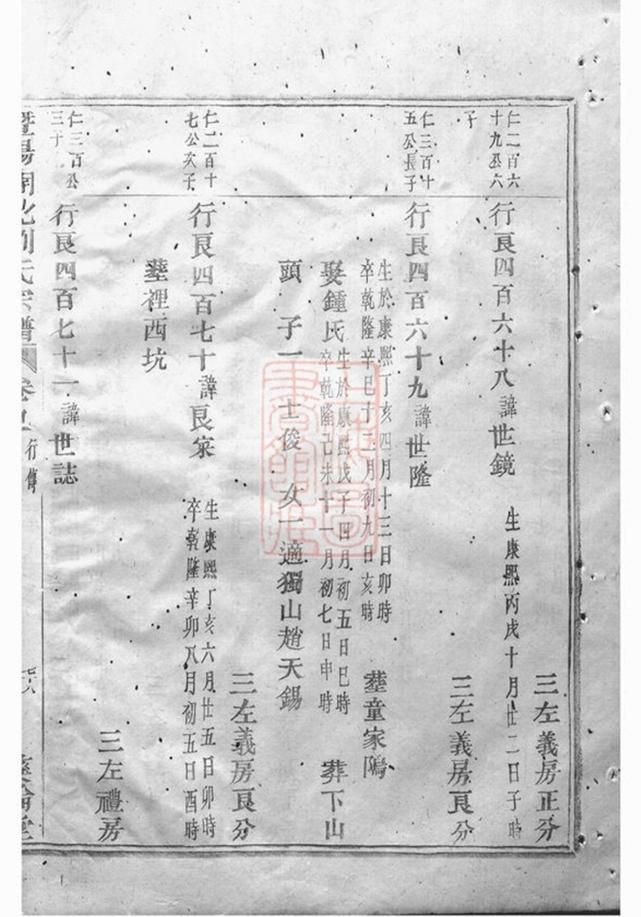 三左義房正分
仁二百六
十九公六
子
行良四百六十八 諱世鏡 生康熙丙戌十月廿二日子時
三左義房良分
仁三百十
五公長子
行良四百六十九 諱世隆
生於康熙丁亥四月十三日卯時
卒乾隆辛巳十二月初九日亥時
塟童家隖
娶鍾氏
生於康熙戊子四月初五日巳時
卒乾隆己未十一月初七日申時
葬下山
頭 子一 士俊 女一 適獨山趙天錫
三左義房良分
仁二百十
七公次子
行良四百七十 諱良寀
生康熙丁亥六月廿五日卯時
卒乾隆辛卯八月初五日酉時
塟裡西坑
三左禮房
仁三百公
三子
行良四百七十一 諱世誌
暨陽開化劉氏宗譜 卷 行傳